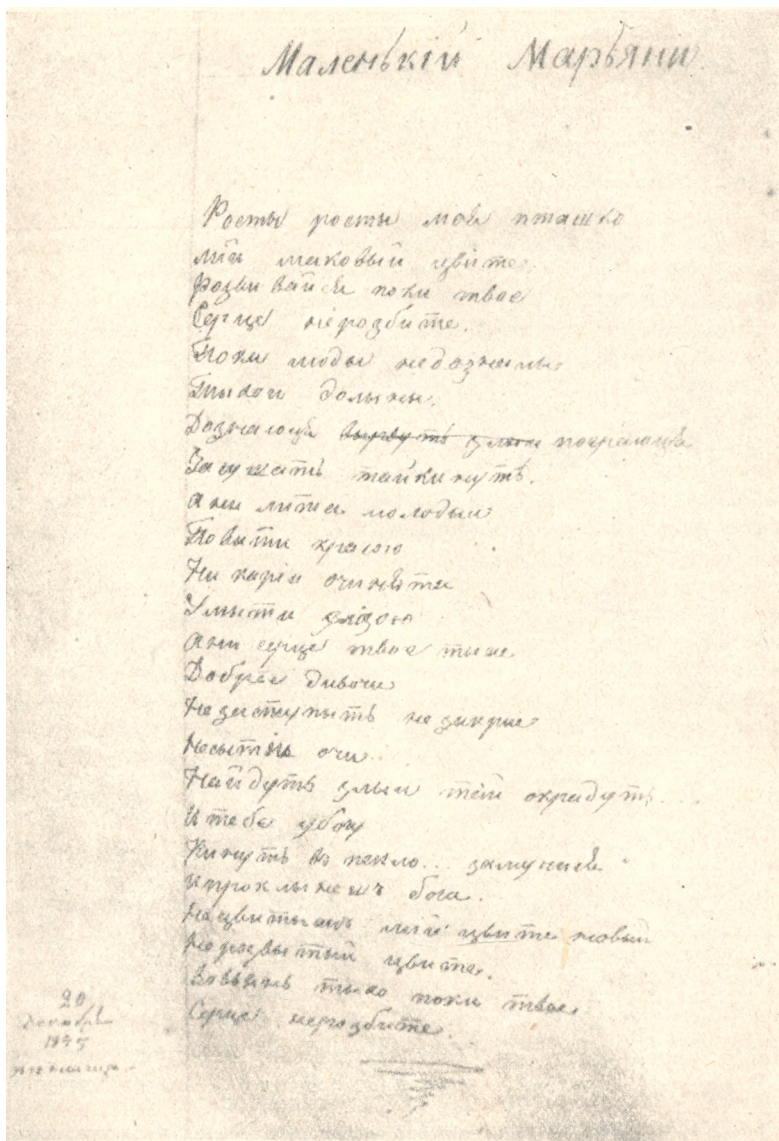 Маленькій Марьяни
Росты росты моя пташко
Мій маковый цвите
Розвивайся поки твое
Серце неразбите.
Поки люды недозналы
Тыхои долыны.
Дознаюця вырвуть злыи пограюця
Засушать тайкинуть.
Ани лита молодыи
Повыти красою
Ни карии очинята
Умыти слізою
Ани серце твое тыхе
Добрее дивоче
Незаступыть не закрие
Несытіи очи
Найдуть злыи тай окрадуть.
И тебе убогу
Кинуть в пекло... замучися
И проклынешъ бога.
Нецвитыжъ мій цвите новый
Нерозвытый цвите.
Зовъянь тыхо поки твое
Серце неразбите.
20
Декабря
1845
Вьюнища